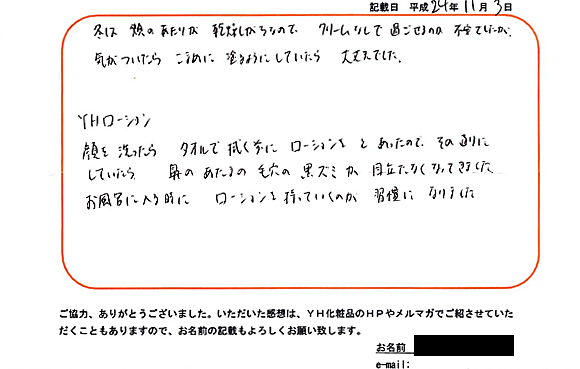 記載日 平成 24年 11月 3日
冬は 頬のあたりが 乾燥しがちなので クリームなしで 過ごせるのか 不安でしたが、
気がついたら こまめに 塗るようにしていたら 大丈夫でした。
YHローション
顔を洗ったら タオルで拭く前に ローションを とあったので その通りに
していたら 鼻のあたまの毛穴の黒ズミが 目立たなくなってきました
お風呂に入る時に ローションを持っていくのが 習慣に なりました
ご協力、ありがとうございました。いただいた感想は、YH化粧品のHPやメルマガでご紹介させていた
だくこともありますので、お名前の記載もよろしくお願い致します。
お名前
e-mail: